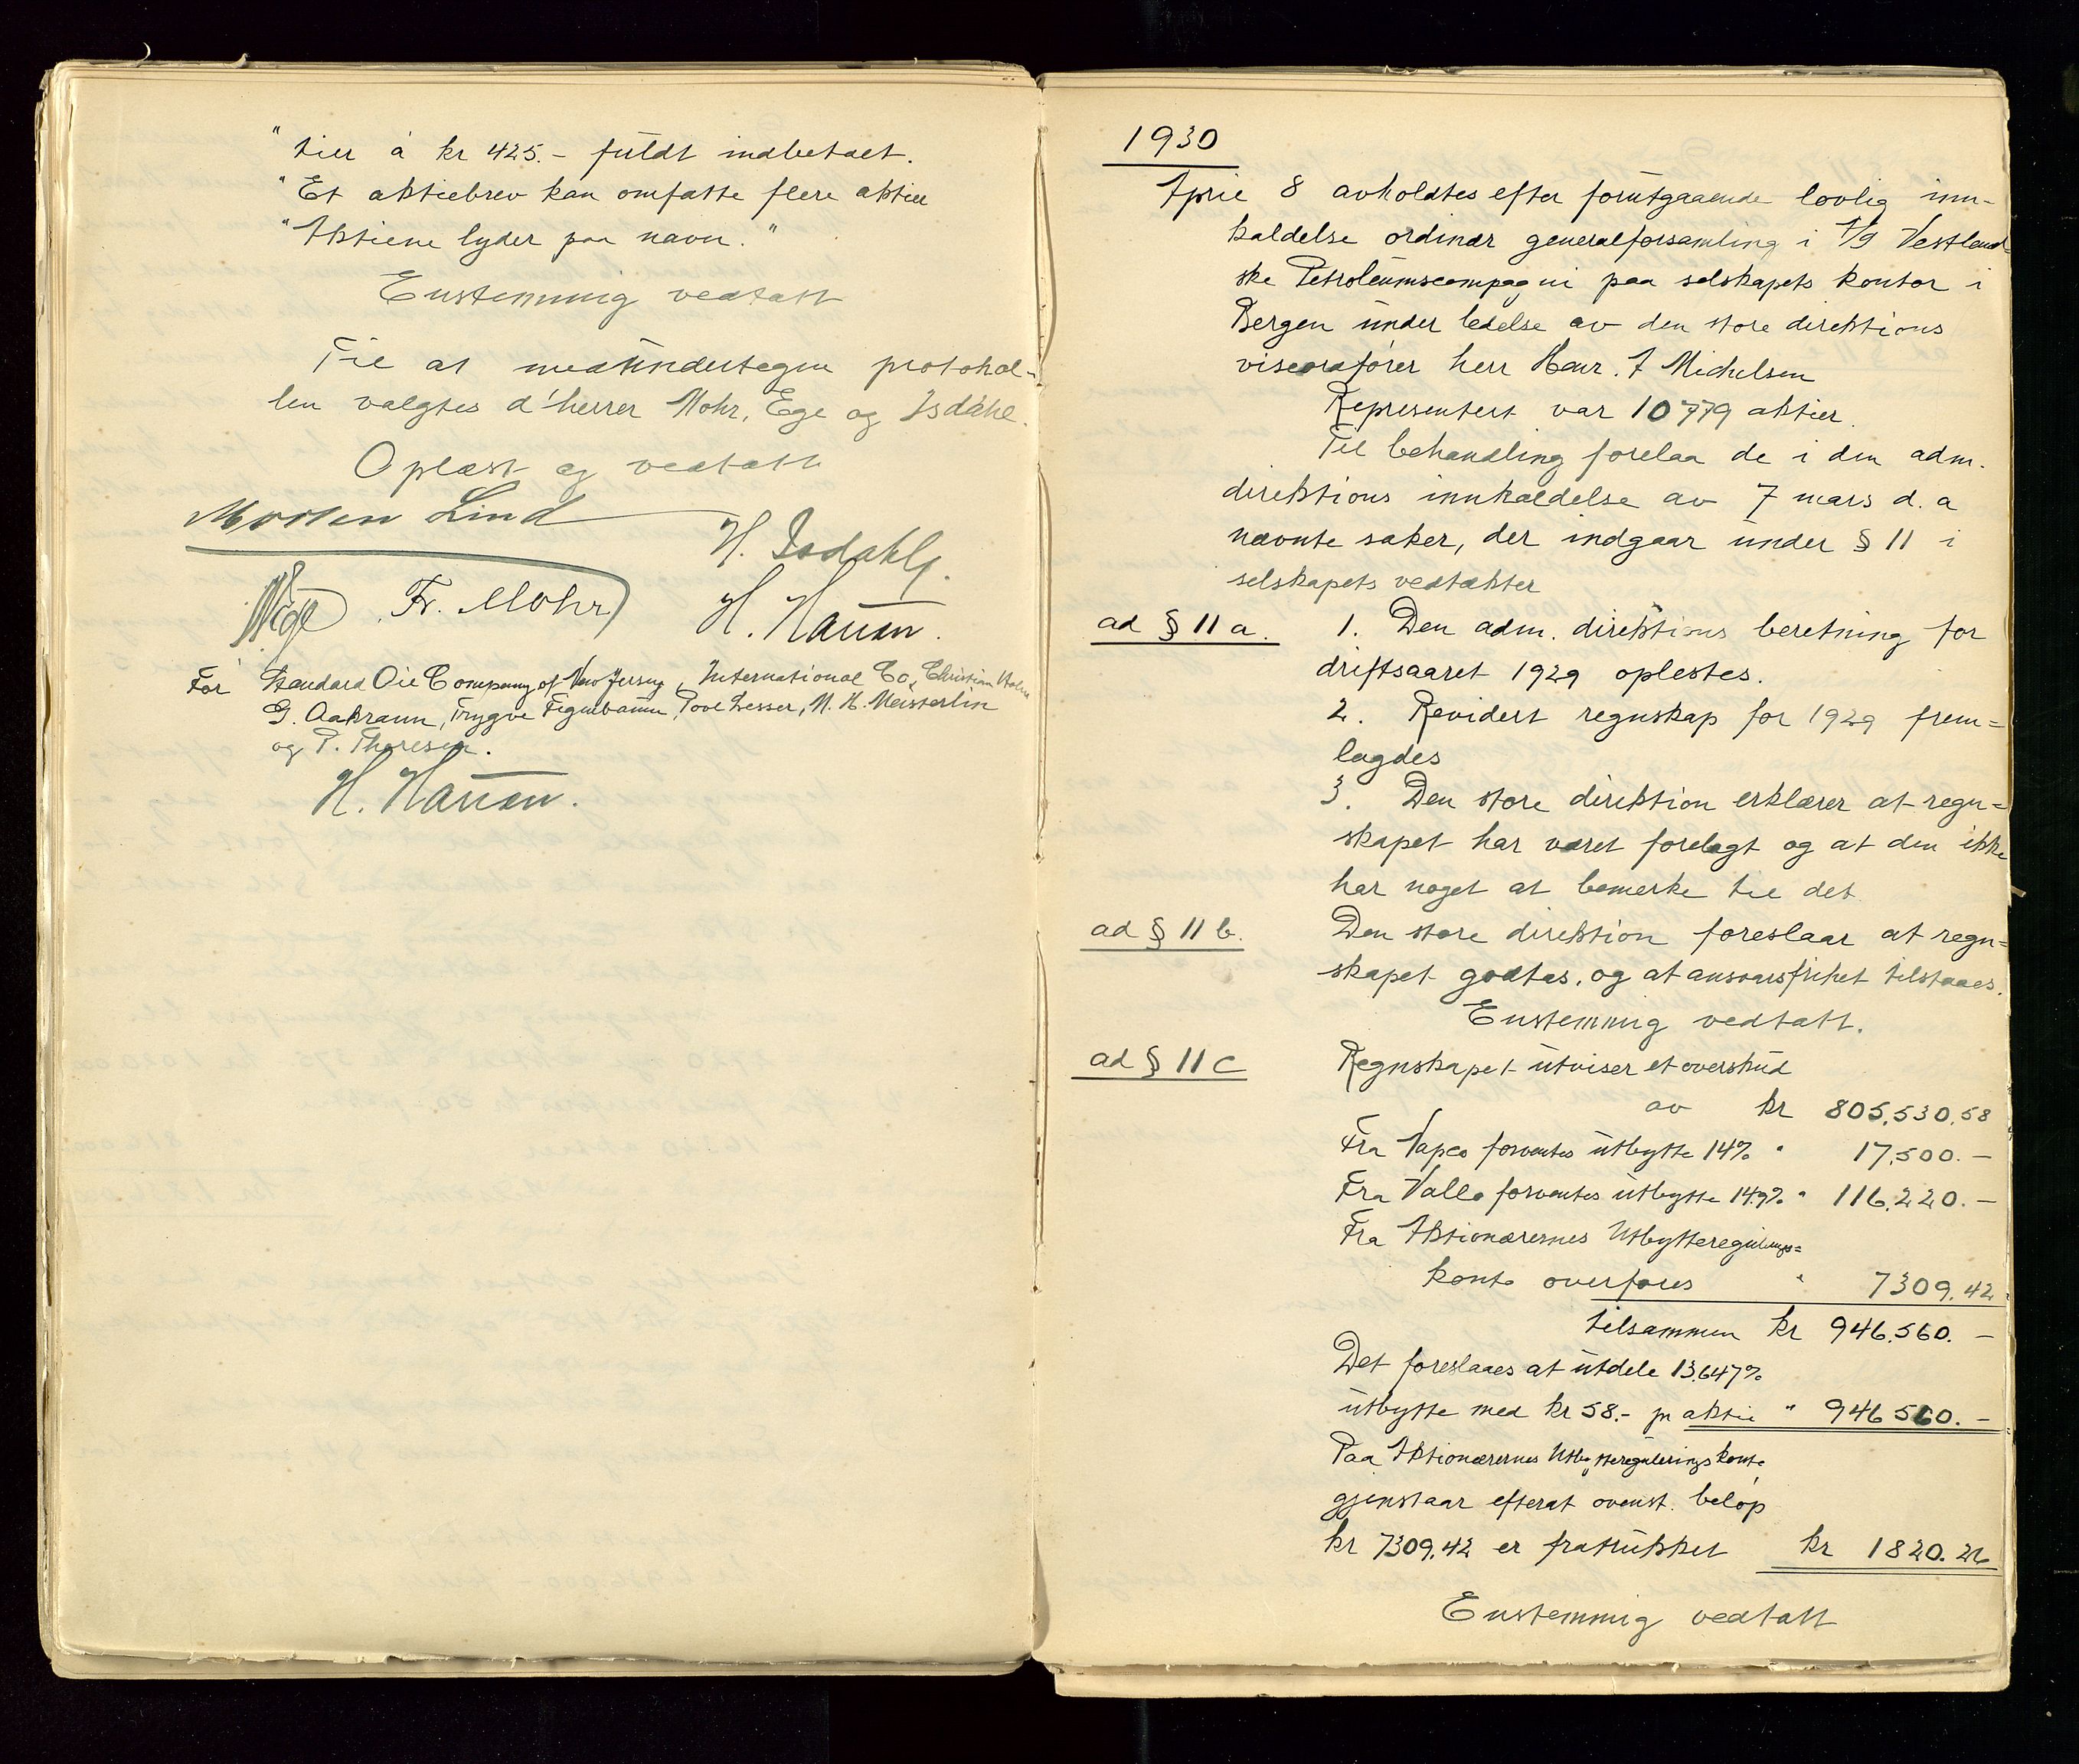 "tier à kr 425.- fuldt indbetalt.
"Et aktiebrev kan omfatte flere aktier
"Aktiene lyder paa navn."
Enstemmig vedtatt
Til at medundertegne protokol-
len valgtes d'herrer Mohr, Ege og Isdahl.
Oplæst og vedtatt
Morten Lind
H. Isdahl
Ege Fr. Mohr
H. Hausen.
For Standard Oil Company of New Jersey, International Co, Christian Holm
G. Aakrann, Trygve Fignebaum, Povl Lesser, N. H. Meisterlin
og P. Thoresen.
H. Hausen.
1930
April 8 avholdtes efter forutgaaende lovlig inn-
kaldelse ordinær generalforsamling i A/S Vestland-
ske Petroleumscompagni paa selskapets kontor i
Bergen under ledelse av den store direktions
viseordfører herr Henr. J Michelsen
Representert var 10779 aktier.
Til behandling forelaa de i den adm.
direktions innkaldelse av 7 mars d. a
nævnte saker, der indgaar under § 11 i
selskapets vedtækter
ad § 11 a. 1. Den adm. direktions beretning for
driftsaaret 1929 oplestes.
2. Revidert regnskap for 1929 frem=
lagdes
3. Den store direktion erklærer at regn=
skapet har været forelagt og at den ikke
har noget at bemerke til det
ad § 11 b. Den store direktion foreslaar at regn=
skapet godtas, og at ansvarsfrihet tilstaaes.
Enstemmig vedtatt.
ad § 11 c Regnskapet utviser et overskud
av kr 805,530,58
Fra Vapco forventes utbytte 14% " 17,500.-
Fra Vallo forventes utbytte 14.9% " 116,220.-
Fra Aktionærernes Utbytteregulerings=
konto overføres " 7309.42
tilsammen kr 946.560.-
Det foreslaaes at utdele 13,647%
utbytte med kr 58.- pr aktie " 946 560.-
Paa Aktionærernes Utbytteregulerings konto
gjenstaar efterat ovenst. beløp
kr 7309.42 er fratrukket kr 1820.26
Enstemmig vedtatt